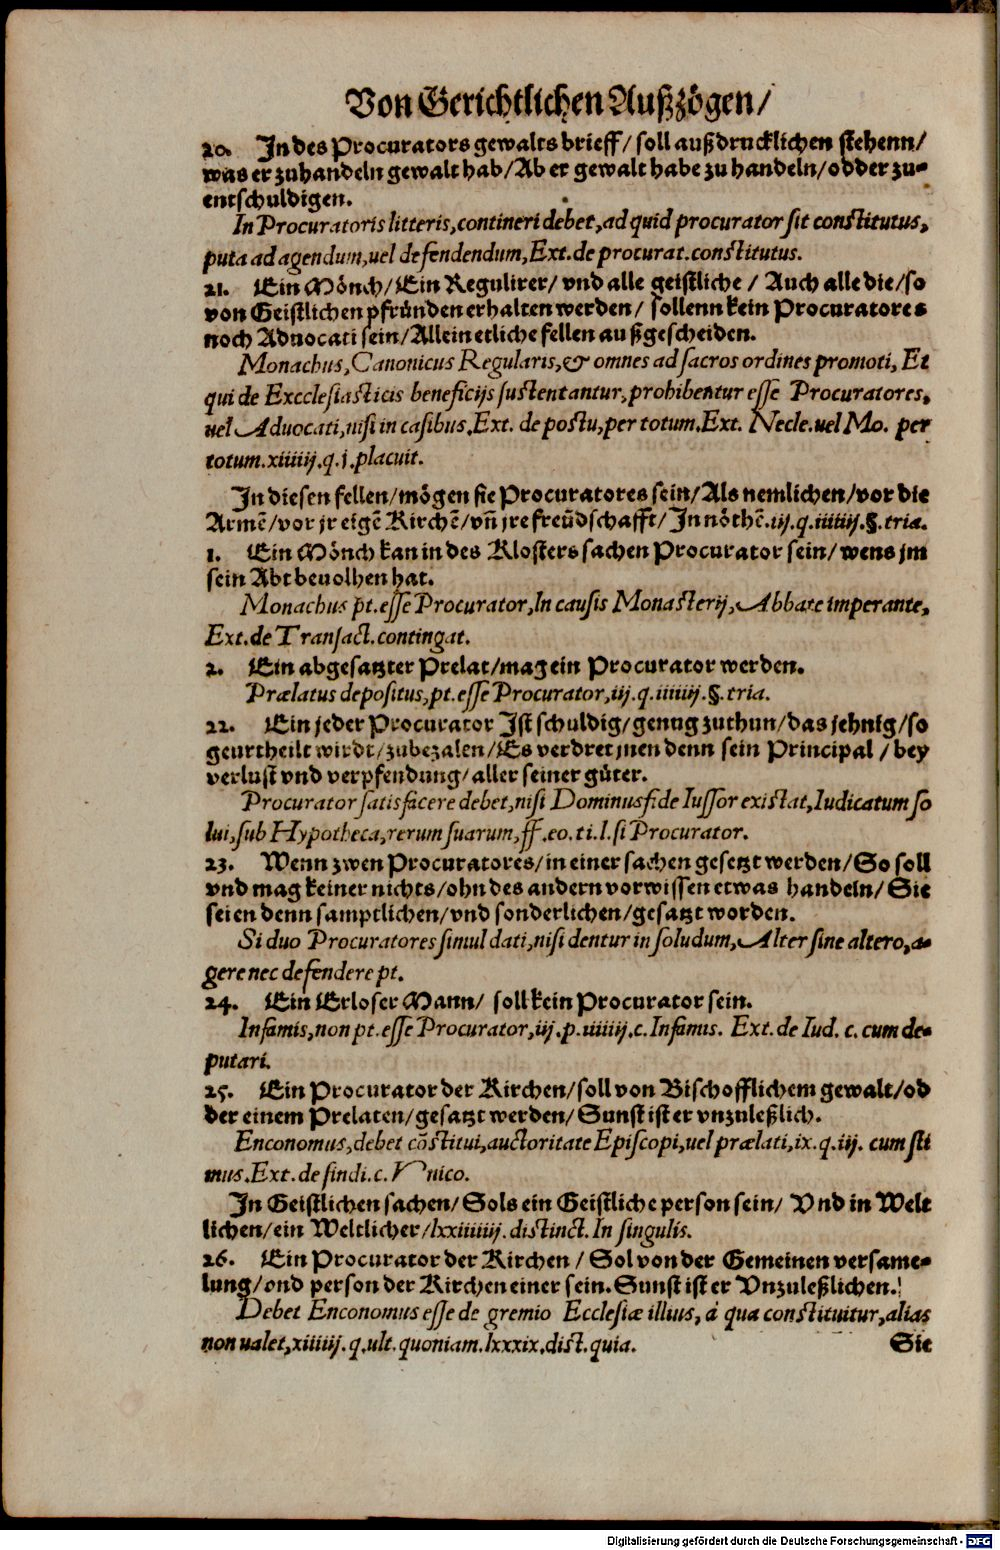 Von Gerichtlichen Außzögen/
20. In des Procurators gewalts brieff/ soll außdrucklichen stehenn/
was er zuhandeln gewalt hab/Ab er gewalt habe zu handeln/odder zu-
entschuldigen.
In Procuratoris litteris, contineri debet, ad quid procurator sit constitutus,
puta ad agendum, uel defendendum, Ext. de procurat. constitutus.
21. Ein Mönch/Ein Regulirer/ vnd alle geistliche / Auch alle die/so
von Geistlichen pfründen erhalten werden/ sollenn kein Procuratores
noch Aduocati sein/Allein etliche fellen außgescheiden.
Monachus, Canonicus Regularis, & omnes ad sacros ordines promoti, Et
qui de Excclesiasticis beneficijs sustentantur, prohibentur esse Procuratores,
uel Aduocati, nisi in casibus. Ext. de postu, per totum. Ext. Necle. uel Mo. per
totum. xiiiiij. q. j. placuit.
In diesen fellen/mögen sie Procuratores sein/Als nemlichen/vor die
Armē/vor jr eigē Kirchē/vñ jre freūdschafft/ In nöthē. iij. q. iiiiiij. §. tria.
1. Ein Mönch kan in des Klosters sachen Procurator sein/ wens jm
sein Abt beuolhen hat.
Monachus pt. esse Procurator, In causis Monasterij, Abbate imperante,
Ext. de Transact. contingat.
2. Ein abgesatzter Prelat/mag ein Procurator werden.
Prælatus depositus, pt. esse Procurator, iij. q. iiiiiij. §. tria.
22. Ein jeder Procurator Ist schuldig/genug zuthun/das jehnig/so
geurtheilt wirdt/zubezalen/Es verdret jnen denn sein Principal / bey
verlust vnd verpfendung/aller seiner güter.
Procurator satisfacere debet, nisi Dominus fide Iussor existat, Iudicatum so
lui, sub Hypotheca, rerum suarum, ff. eo. ti. l. si Procurator.
23. Wenn zwen Procuratores/in einer sachen gesetzt werden/So soll
vnd mag keiner nichts/ohn des andern vorwissen etwas handeln/ Sie
seien denn samptlichen/vnd sonderlichen/gesatzt worden.
Si duo Procuratores simul dati, nisi dentur in soludum, Alter sine altero, a-
gere nec defendere pt.
24. Ein Erloser Mann/ soll kein Procurator sein.
Infamis, non pt. esse Procurator, iij. p. iiiiiij. c. Infamis. Ext. de Iud. c. cum de-
putari.
25. Ein Procurator der Kirchen/soll von Bischofflichem gewalt/od
der einem Prelaten/gesatzt werden/Sunst ist er vnzuleßlich.
Enconomus, debet cōstitui, auctoritate Episcopi, uel prælati, ix. q. iij. cum sti
mus. Ext. de sindi. c. Vnico.
In Geistlichen sachen/Sols ein Geistliche person sein/ Vnd in Welt
lichen/ein Weltlicher/lxxiiiiiij. distinct. In singulis.
26. Ein Procurator der Kirchen / Sol von der Gemeinen versame-
lung/ond person der Kirchen einer sein. Sunst ist er Vnzuleßlichen.
Debet Enconomus esse de gremio Ecclesiæ illius, à qua constituitur, alias
non ualet, xiiiiij. q. ult. quoniam. lxxxix. dist. quia.
Sie
Digitalisierung gefördert durch die Deutsche Forschungsgemeinschaft - DFG